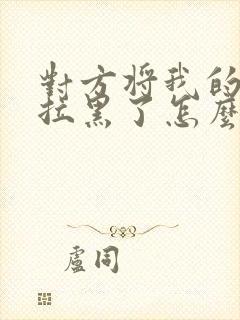 對方將我的
拉黑了怎麼
盧同